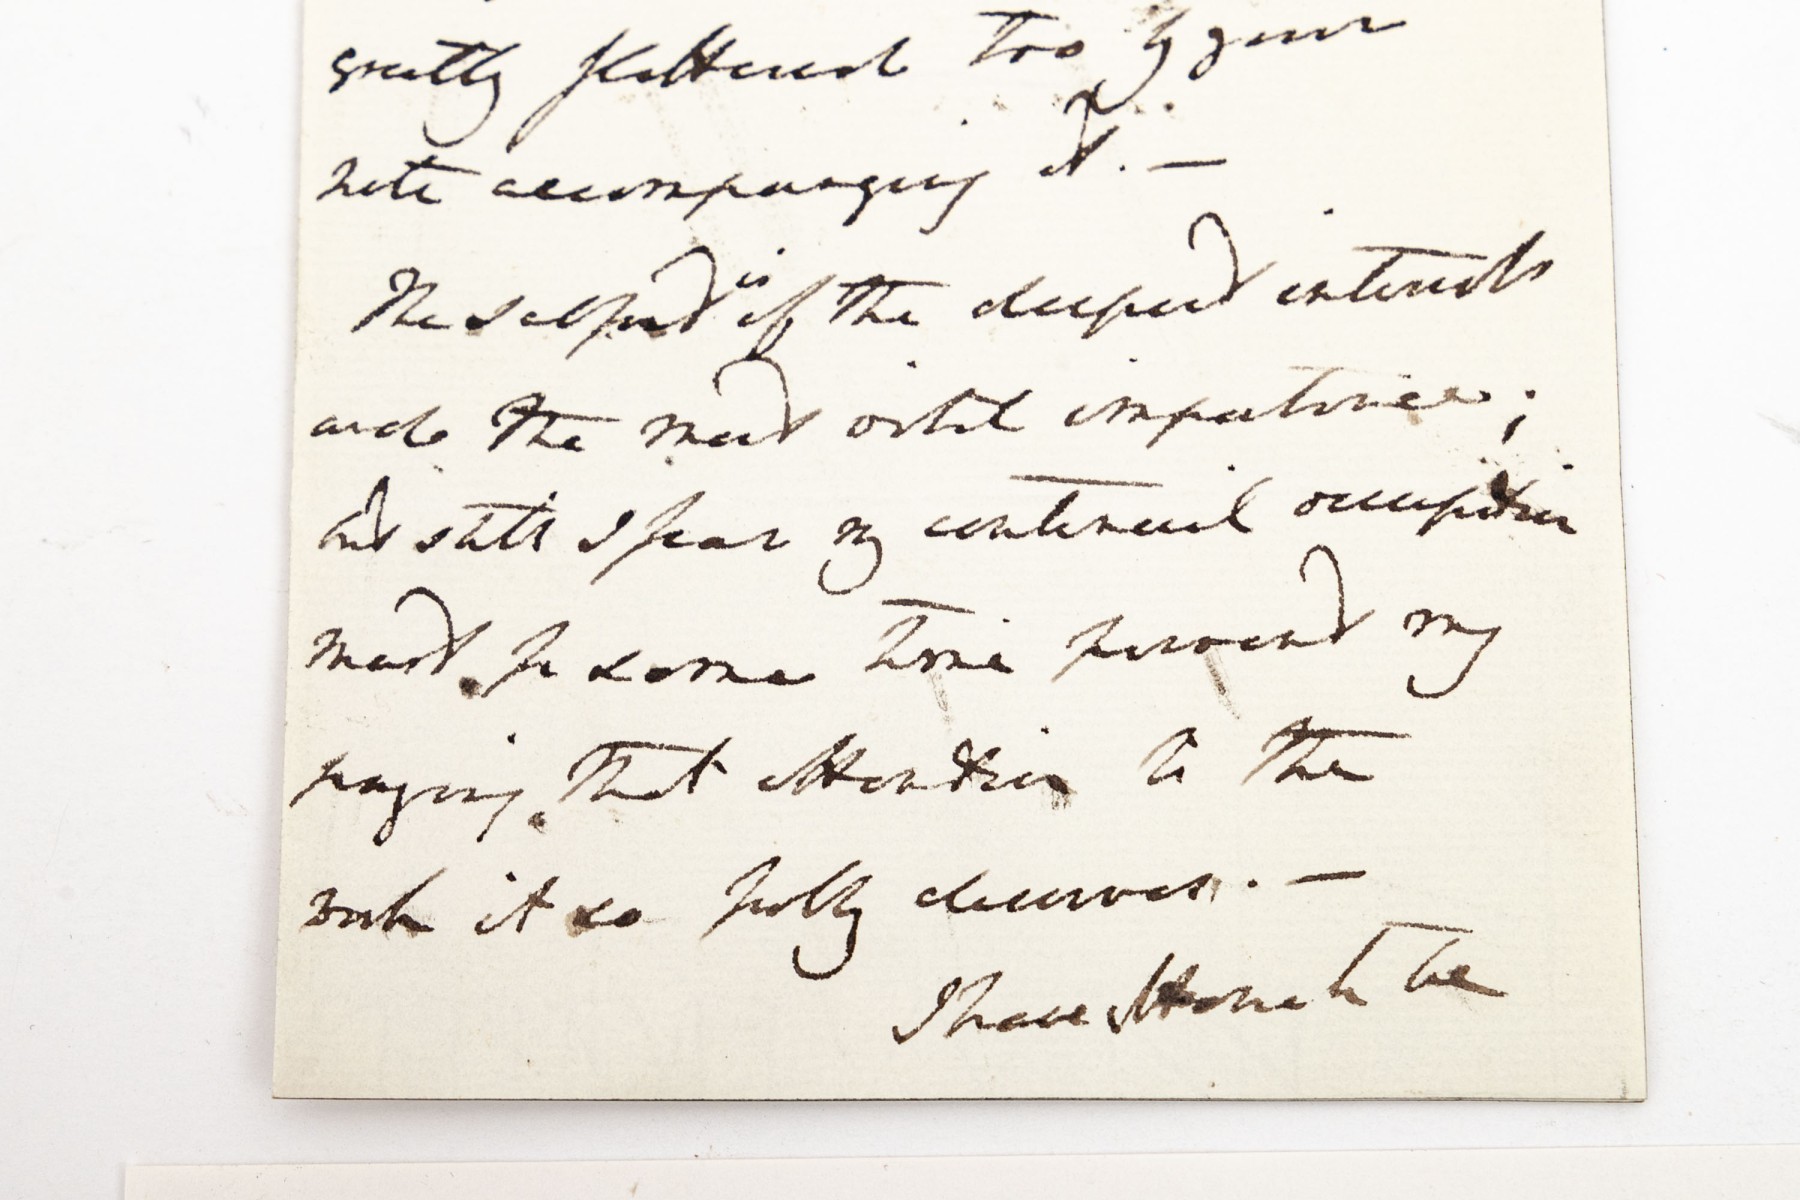 greatly flattered too by your
note accompanying it. —
The subject is of the deepest interest
and the most vital importance;
but still I fear my continual occupation
must for some time prevent my
paying that attention to the
work it so fully deserves. —
I have the Honor to be